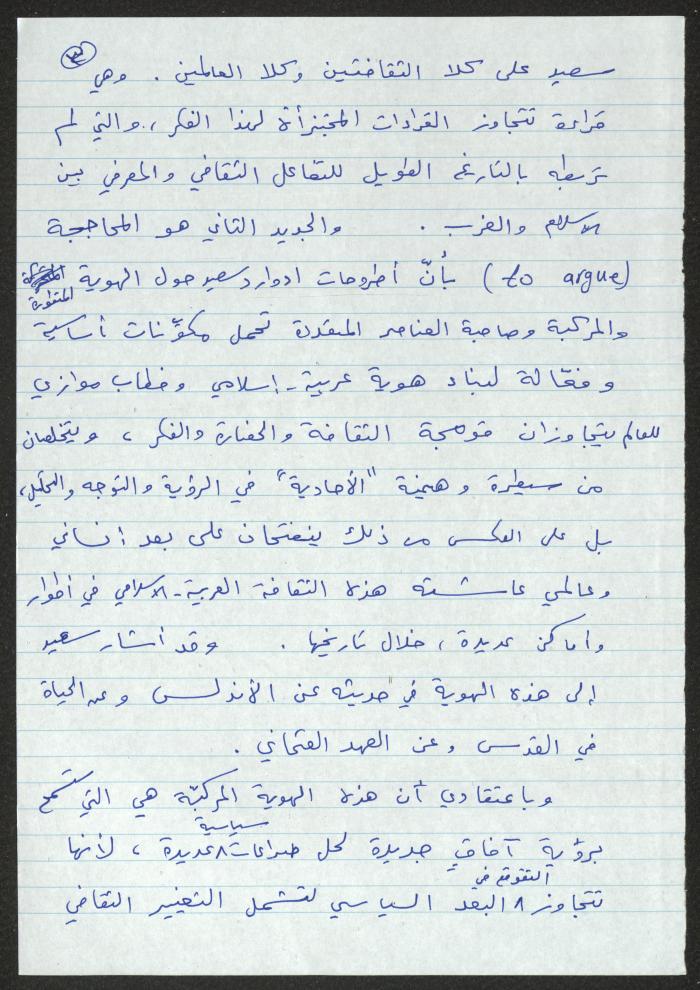 ٣
سعيد على كلا الثقافتين وكلا العالمين . وهي
قراءة تتجاوز القراءات المجتزأة لهذا الفكر ، والتي لم
تربطه بالتاريخ الطويل للتفاعل الثقافي والمعرفي بين
الاسلام والغرب . والجديد الثاني هو المحاججة
(to argue) بأنّ أطروحات ادوارد سعيد حول الهوية
المتطورة
والمركبة وصاحبة العناصر المتعددة تحمل مكوّنات أساسية
وفعّالة لبناء هوية عربية - إسلامي وخطاب موازي
للعالم يتجاوزان قوقعة الثقافة والحضارة والفكر ، ويتخلصان
من سيطرة وهيمنة "الأحادية" في الرؤية والتوجه والتحليل،
بل على العكس من ذلك ينفتحان على بعد انساني
وعالمي عاشته هذه الثقافة العربية - الاسلامي في أطوار
وأماكن عديدة ، خلال تاريخها . وقد أشار سعيد
إلى هذه الهوية في حديثه عن الأندلس وعن الحياة
في القدس وعن العهد العثماني .
وباعتقادي أن هذه الهوية المركبّة هي التي تسمح
سياسية
برؤية آفاق جديدة لحل صراعات عديدة ، لأنها
التقوقع في
تتجاوز البعد السياسي لتشمل التغيير الثقافي